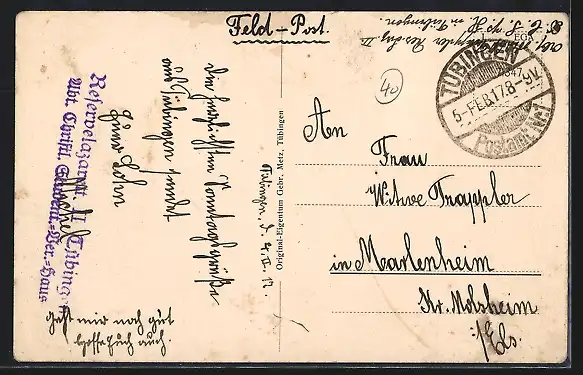 Feld-Post.
in Tübingen.
TÜBINGEN
5-FEB.17.8-9V.
Postamt No 1
40
An
Frau
Witwe Trappler
in Marlenheim
Kr. Molsheim
i/Els.
Original-Eigentum Gebr. Metz, Tübingen
Tübingen, d. 4.II.17.
Die herzlichsten Sonntagsgrüße
aus Tübingen sendet
Euer Sohn
geht mir noch gut
hoffe Euch auch.
Reservelazarett II Tübingen
Abt. Christl. Student.-Ver.-Haus